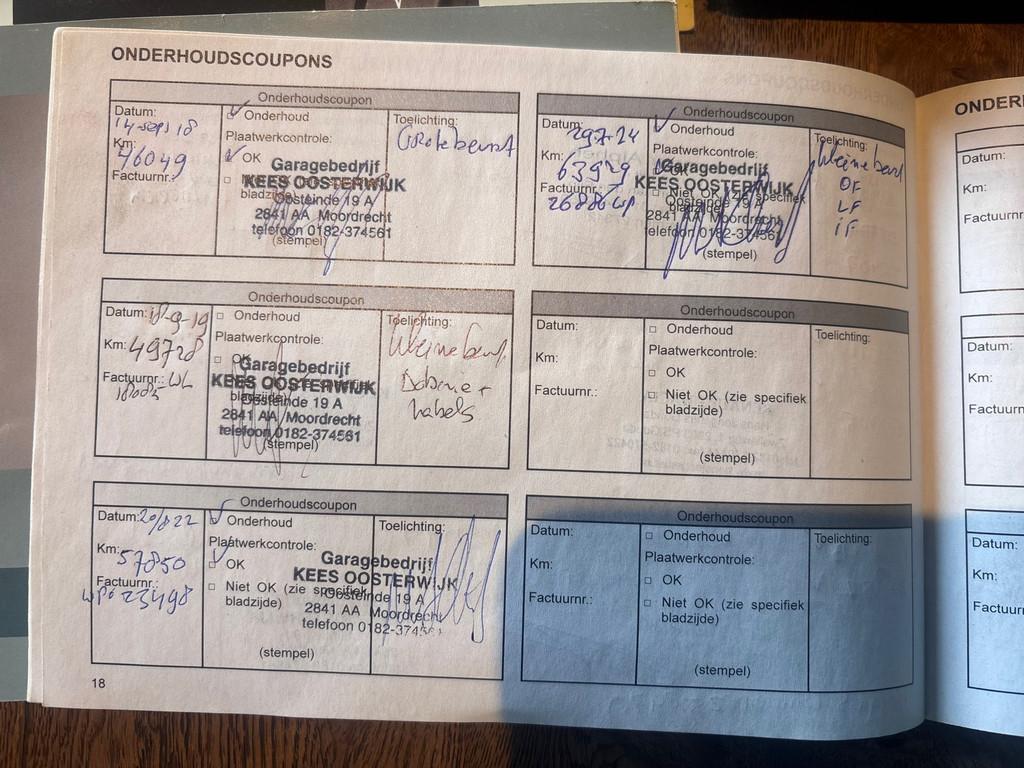 ONDERHOUDSCOUPONS
Onderhoudscoupon
Datum:
14 sept 18
Km:
46049
Factuurnr.:
Onderhoud
Plaatwerkcontrole:
OK
bladzijde)
(stempel)
Garagebedrijf
KEES OOSTERWIJK
Oosteinde 19 A
2841 AA Moordrecht
telefoon 0182-374561
Toelichting:
Grote beurt
Onderhoudscoupon
Datum: 18-9-19
Km: 49728
Factuurnr.:
Onderhoud
Plaatwerkcontrole:
OK
Garagebedrijf
KEES OOSTERWIJK
Oosteinde 19 A
2841 AA Moordrecht
telefoon 0182-374561
(stempel)
Toelichting:
kleine beurt
kabels
Onderhoudscoupon
Datum: 20/8 22
Km:
57850
Factuurnr.:
23498
Onderhoud
Plaatwerkcontrole:
OK
Niet OK (zie specifiek
bladzijde)
Garagebedrijf
KEES OOSTERWIJK
Oosteinde 19 A
2841 AA Moordrecht
telefoon 0182-37456
(stempel)
Toelichting:
18
Onderhoudscoupon
Datum:
29-7-24
Km:
63929
Factuurnr.:
26886 WP
Onderhoud
Plaatwerkcontrole:
OK
Niet OK (zie specifiek
bladzijde)
Garagebedrijf
KEES OOSTERWIJK
Oosteinde 19 A
2841 AA Moordrecht
telefoon 0182-374561
(stempel)
Toelichting:
kleine beurt
OF
LF
iF
Onderhoudscoupon
Datum:
Km:
Factuurnr.:
Onderhoud
Plaatwerkcontrole:
OK
Niet OK (zie specifiek
bladzijde)
(stempel)
Toelichting:
Onderhoudscoupon
Datum:
Km:
Factuurnr.:
Onderhoud
Plaatwerkcontrole:
OK
Niet OK (zie specifiek
bladzijde)
(stempel)
Toelichting:
ONDERH
Datum:
Km:
Factuurnr
Datum:
Km:
Factuurn
Datum:
Km:
Factuur